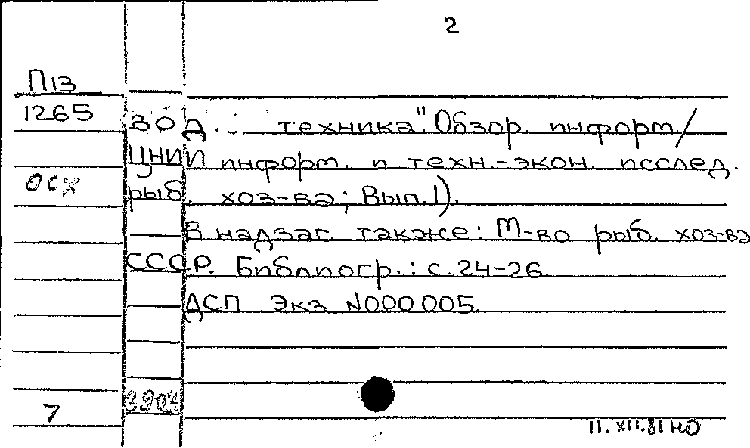 2
П13
1265
вод. техника". Обзор. информ/
ЦНИИ информ. и техн.-экон. исслед.
рыб. хоз-ва; Вып.1).
В надзаг. также: М-во рыб. хоз-ва
СССР. Библиогр.: с.24-26
ДСП Экз N000005
7
11.XII.81 НО